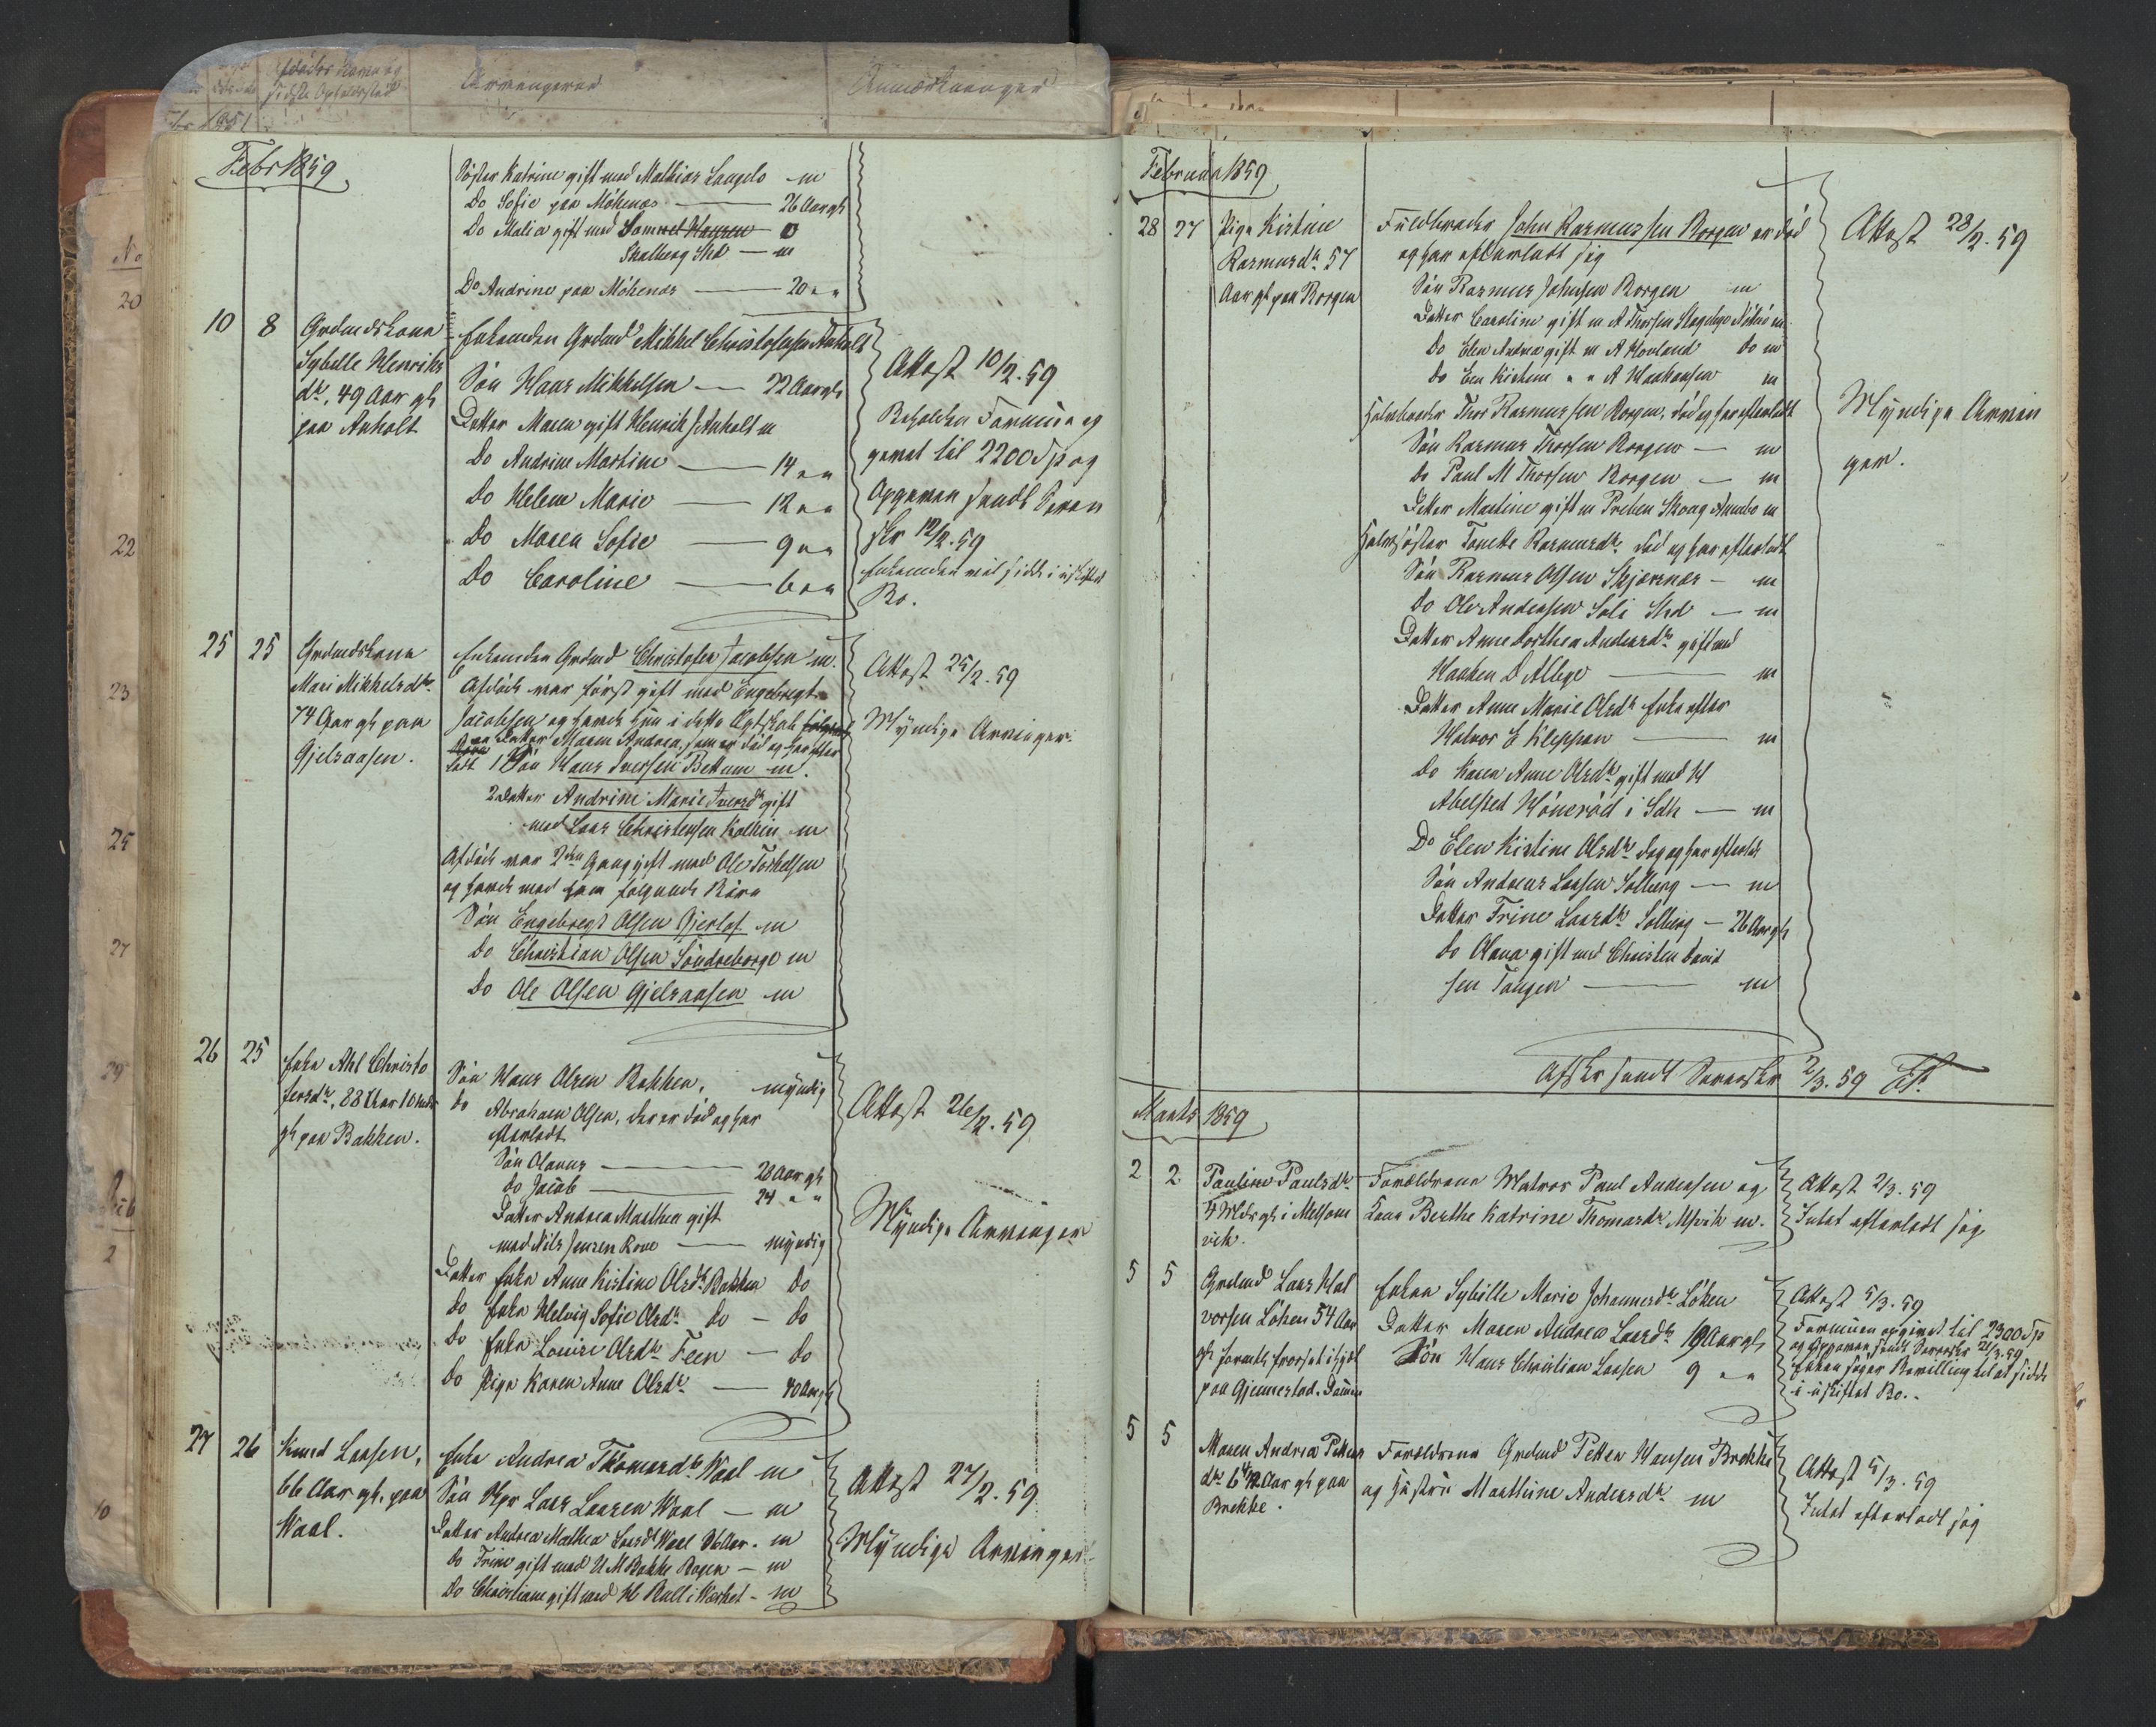 Afdødes Navn og
sidste Opholdssted
Arvingerne
Anmærkninger
Febr 1859
Søster Katrine gift med Mathias Langelo m
Do Sofie paa Möhenæs 26 Aar gl
Do Malia gift med Samuel Hansen
Stalberg Shd m
Do Andrine paa Möhenæs 20 " "
10 8 Grdmdskone
Sybelle Henriks
dr, 49 Aar gl
paa Anholt
Enkemden Grdmd Mikkel Christofersen Anholt
Søn Hans Mikkelsen 22 Aar gl
Datter Maren gift Henrik J Anholt m
Do Andrine Martine 14 " "
Do Helene Marie 12 " "
Do Maren Sofie 9 " "
Do Caroline 6 " "
Attest 10/2. 59
Beholden Formue op
givet til 2200 Sp og
Opgaven sendt Soren
skr 12/2. 59
Enkemden vil sidde i uskiftet
Bo.
25 25 Grdmdskone
Mari Mikkelsdtr.
74 Aar gl paa
Gjelsaasen.
Enkemden Grdmd Christofer Jacobsen m.
Afdöde var först gift med Engebregt
Jacobsen og havde hun i dette Ægteskab følgende
Börn en Datter Maren Andrea, som er död og har efter
ladt 1 Søn Hans Iversen Bettum m.
2 Datter Andrine Marie Iversdr gift
med Lars Christensen Kolkin m
Afdöde var 2den Gang gift med Ole Torkelsen
og havde med ham følgende Börn
Søn Engebregt Olsen Gjerlof m
Do Christian Olsen Söndreborge m
Do Ole Olsen Gjelsaasen m
Attest 25/2. 59
Myndige Arvinger.
26 25 Enke Ahl Christo
fersdr, 88 Aar 10 Mdr
gl paa Bakken.
Søn Hans Olsen Bakken, myndig
Do Abraham Olsen, der er död og har
efterladt
Søn Olavus 28 Aar gl
Do Jacob 24 " "
Datter Andrea Marthea gift
med Nils Jensen Rove myndig
Datter Enke Anne Kirstine Olsdr Bakken Do
Do Enke Helvig Sofie Olsdr Do Do
Do Enke Louise Olsdr Feen Do
Do Pige Karen Anne Olsdr 40 Aar gl
Attest 26/2. 59
Myndige Arvinger
27 26 Knud Larsen,
66 Aar gl. paa
Waal.
Enke Andrea Thomasdr Waal m
Søn Skpr Lars Larsen Waal m
Datter Andrea Mathea Larsdr Waal 36 Aar. m
Do Trine gift med U M Bakke Bogen m
Do Christiane gift med H Bull i Værket m
Attest 27/2. 59
Myndige Arvinger
Februar 1859
28 27 Pige Kirstine
Rasmusdr 57
Aar gl paa Borgen
Fuldbroder John Rasmussen Borgen er död
og har efterladt sig
Søn Rasmus Johnsen Borgen m
Datter Caroline gift m A Thorsen Skogelyo Nöterö m
Do Elen Andrea gift m A Hovland Do m
Do Elen Kirstine " " A Haakonsen m
Halvbroder Thor Rasmussen Borgen, död og har efterladt
Søn Rasmus Thorsen Borgen m
Do Paul M Thorsen Borgen m
Datter Martine gift m Preben Skoug Aumbo m
Halvsöster Tonette Rasmusdr. död og har efterladt
Søn Rasmus Olsen Skjærsnæs m
Do Ole Andersen Soli Shd m
Datter Anne Dorthea Andersdr gift med
Haaken D Albge m
Datter Anne Marie Olsdr Enke efter
Halvor E Kleppan m
Do Karen Anne Olsdr gift med H
Abelsted Höneröd i Sdh m
Do Elen Kirstine Olsdr dög og har efterladt
Søn Andreas Larsen Solberg m
Datter Trine Larsdr Solberg 26 Aar gl
Do Olava gift med Christen David
sen Tangen m
Attest 28/2. 59
Myndige Arvin
ger.
Afskr sendt Sorenskr 2/3. 59
Marts 1859
2 2 Pauline Paulsdr
4 Mdr gl i Melsom
vik.
Forældrene Matros Paul Andersen og
Kone Berthe Katrine Thomasdr Melsvik m.
Attest 2/3. 59
Intet efterladt sig
5 5 Grdmd Lars Hal
vorsen Löken 54 Aar
gl havde frosset ihjel
paa Gjennestad-Dammen
Enken Sybille Marie Johannesdr Löken
Datter Maren Andrea Larsdr 19 Aar gl
Søn Hans Christian Larsen 9 " "
Attest 5/3. 59
Formuen opgivet til 2300 Sp
og Opgaven sendt Sorenskr 21/3. 59
Enken söger Bevilling til at sidde
i uskiftet Bo.
5 5 Maren Andrea Petters
dr 6 4/12 Aar gl paa
Brekke.
Forældrene Grdmd Petter Hansen Brekke
og Hustru Marthine Andersdr m
Attest 5/3. 59
Intet efterladt sig